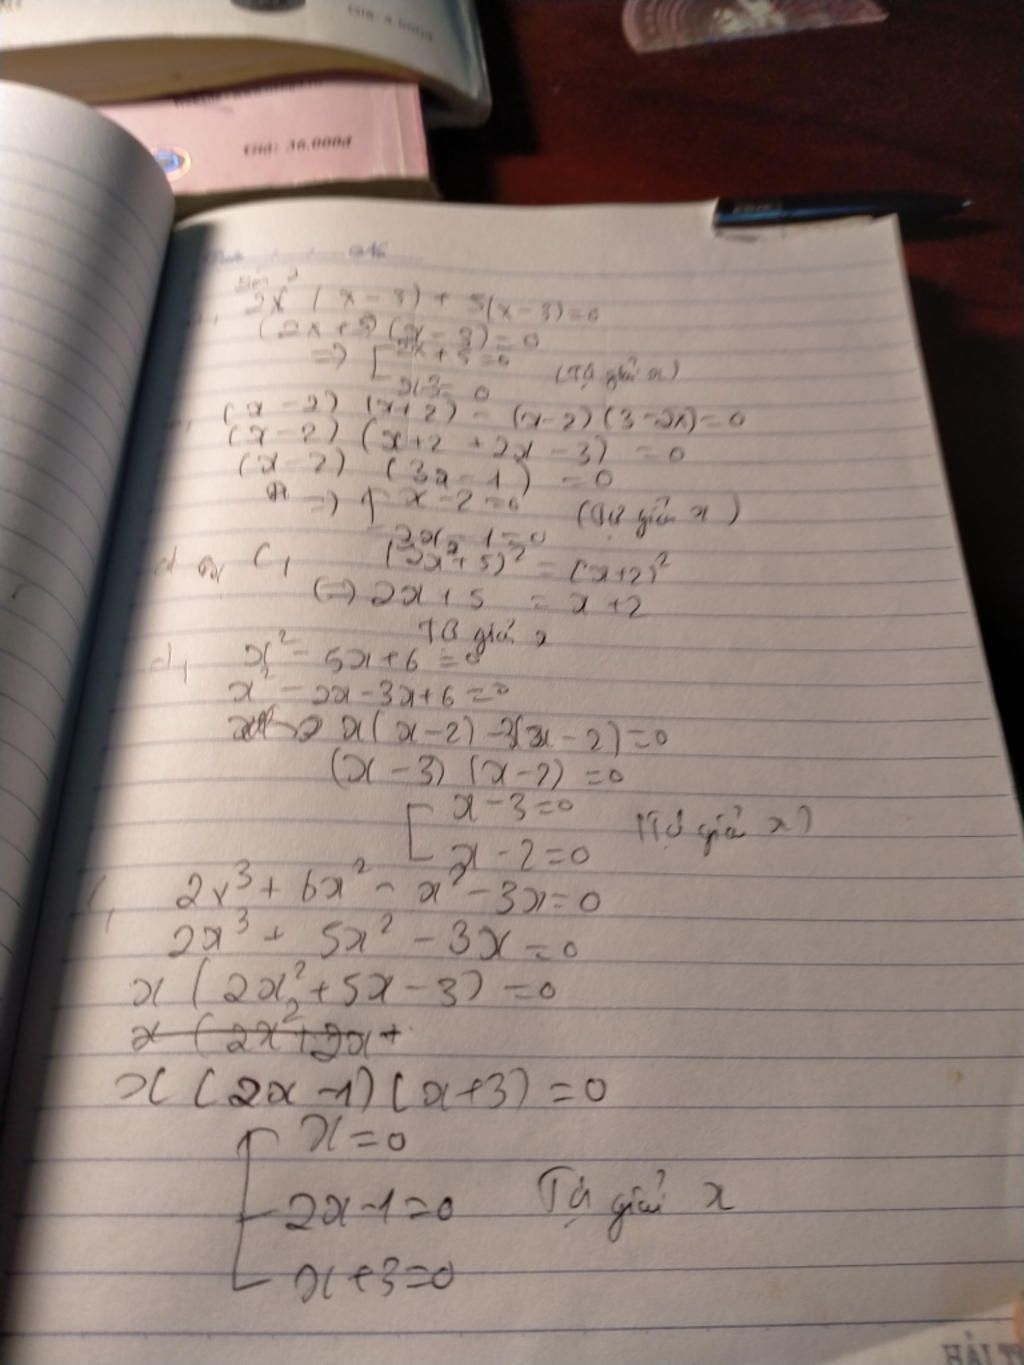 Giá: 36.000đ
No
2x (x - 3) + 5(x - 3) = 0
(2x + 5) (x - 3) = 0
=> [ 2x + 5 = 0
x - 3 = 0 (Tự giải x)
(x - 2) (x + 2) - (x - 2) (3 - 2x) = 0
(x - 2) (x + 2 + 2x - 3) = 0
(x - 2) (3x - 1) = 0
=> [ x - 2 = 0 (Tự giải x)
3x - 1 = 0
C1 (2x + 5)² = (x + 2)²
(=) 2x + 5 = x + 2
Tự giải x
d, x² - 5x + 6 = 0
x² - 2x - 3x + 6 = 0
x(x - 2) - 3(x - 2) = 0
(x - 3) (x - 2) = 0
[ x - 3 = 0 (Tự giải x)
x - 2 = 0
2x³ + 6x² - x² - 3x = 0
2x³ + 5x² - 3x = 0
x (2x² + 5x - 3) = 0
x (2x² + 2x +
x (2x - 1) (x + 3) = 0
[ x = 0
2x - 1 = 0 Tự giải x
x + 3 = 0
HẢI T